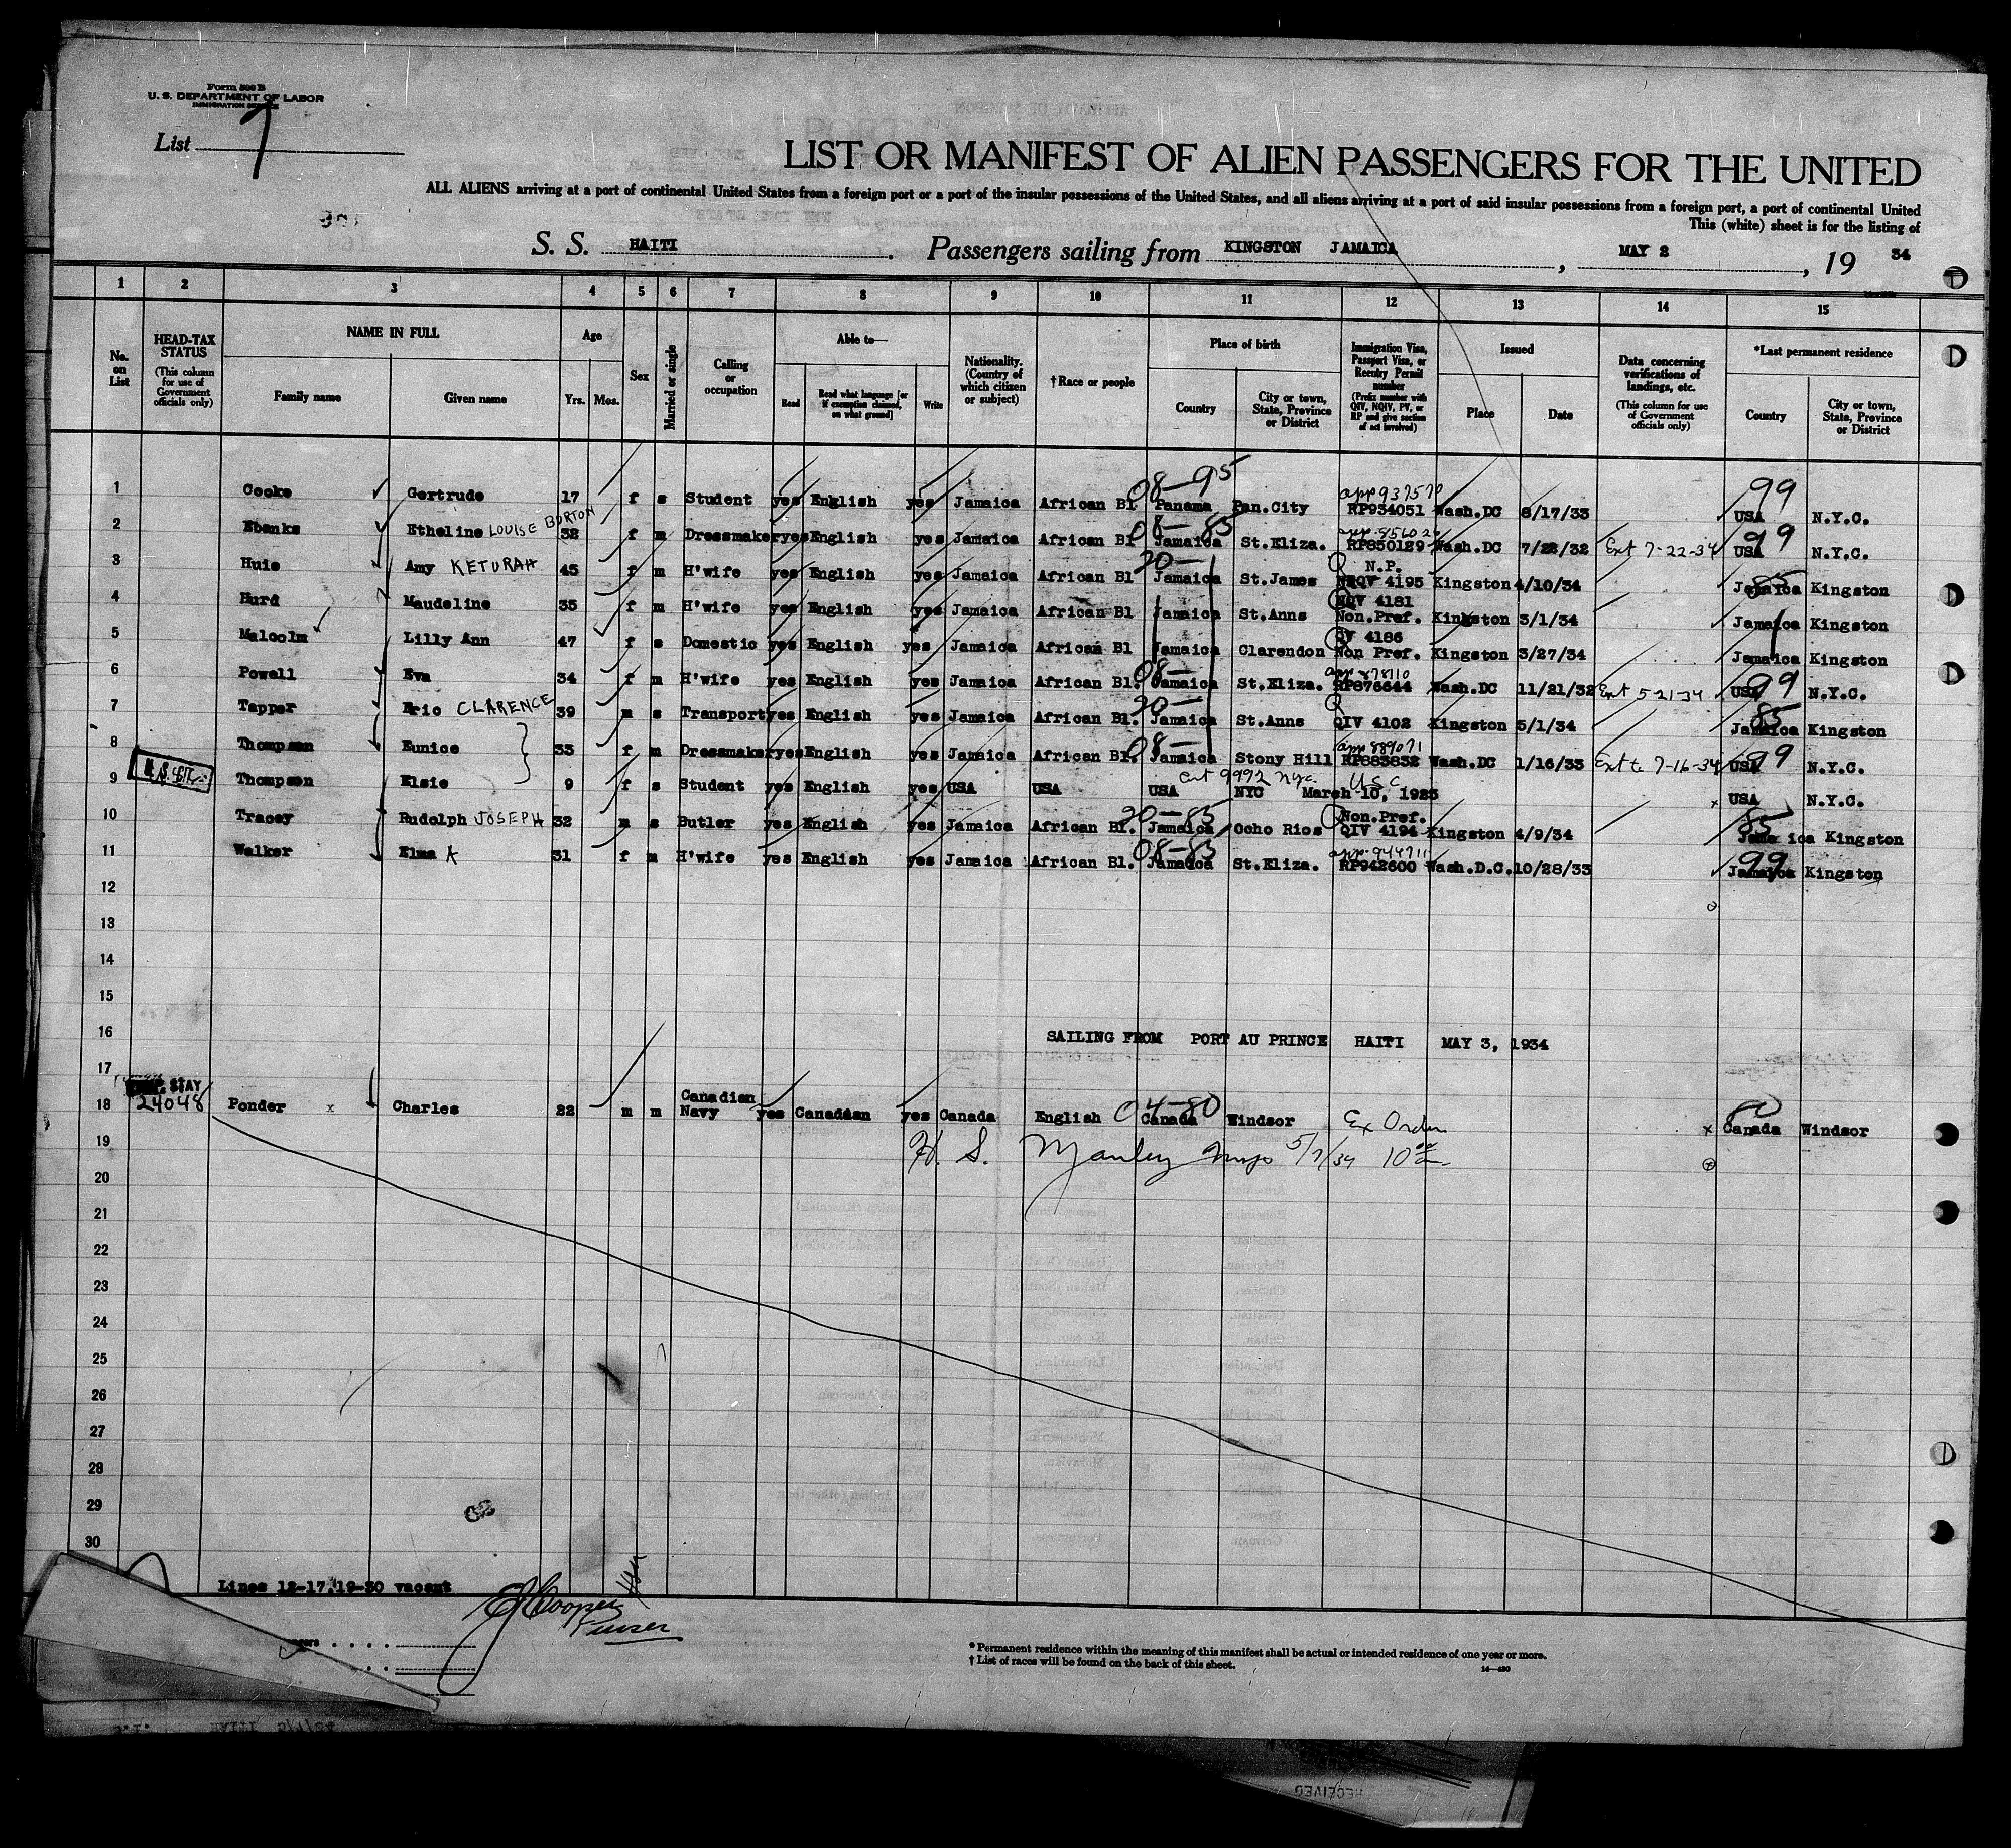 Form 500 B
U. S. DEPARTMENT OF LABOR
IMMIGRATION SERVICE
List 7
LIST OR MANIFEST OF ALIEN PASSENGERS FOR THE UNITED
ALL ALIENS arriving at a port of continental United States from a foreign port or a port of the insular possessions of the United States, and all aliens arriving at a port of said insular possessions from a foreign port, a port of continental United
This (white) sheet is for the listing of
S. S. HAITI. Passengers sailing from KINGSTON JAMAICA, MAY 2, 19 34
1 2 3 4 5 6 7 8 9 10 11 12 13 14 15
No. on List
HEAD-TAX STATUS (This column for use of Government officials only)
NAME IN FULL Family name Given name
Age Yrs. Mos.
Sex
Married or single
Calling or occupation
Able to— Read Read what language [or if exemption claimed, on what ground] Write
Nationality. (Country of which citizen or subject)
†Race or people
Place of birth Country City or town, State, Province or District
Immigration Visa, Passport Visa, or Reentry Permit number (Prefix number with QIV, NQIV, PV, or RP and give section of act involved)
Issued Place Date
Data concerning verifications of landings, etc. (This column for use of Government officials only)
*Last permanent residence Country City or town, State, Province or District
08-95 app 937570 99
1 Cooke Gertrude 17 f s Student yes English yes Jamaica African Bl Panama Pan.City RP934051 Wash.DC 8/17/33 USA N.Y.C.
08-85 99
2 Ebanks Etheline LOUISE BURTON 32 f m Dressmaker yes English yes Jamaica African Bl Jamaica St.Eliza. RP850129 Wash.DC 7/22/32 Ext 7-22-34 USA N.Y.C.
20- N.P. 85
3 Huie Amy KETURAH 45 f m H'wife yes English yes Jamaica African Bl Jamaica St.James NRQV 4195 Kingston 4/10/34 Jamaica Kingston
NQV 4181
4 Hurd Maudeline 35 f m H'wife yes English yes Jamaica African Bl Jamaica St.Anns Non.Pref. Kingston 3/1/34 Jamaica Kingston
QV 4186
5 Malcolm Lilly Ann 47 f s Domestic yes English yes Jamaica African Bl Jamaica Clarendon Non Pref. Kingston 3/27/34 Jamaica Kingston
08- app 878110 99
6 Powell Eva 34 f m H'wife yes English yes Jamaica African Bl. Jamaica St.Eliza. RP876644 Wash.DC 11/21/32 Ext 5-21-34 USA N.Y.C.
20- 85
7 Tapper Eric CLARENCE 39 m s Transport yes English yes Jamaica African Bl. Jamaica St.Anns QIV 4102 Kingston 5/1/34 Jamaica Kingston
08- app 889071 99
8 Thompson Eunice 33 f m Dressmaker yes English yes Jamaica African Bl. Jamaica Stony Hill RP883832 Wash.DC 1/16/33 Ext to 7-16-34 USA N.Y.C.
U.S.CIT. Cert 9992 NYC. U S C
9 Thompson Elsie 9 f s Student yes English yes USA USA USA NYC March 10, 1925 x USA N.Y.C.
20-85 Non.Pref. 85
10 Tracey Rudolph JOSEPH 32 m s Butler yes English yes Jamaica African Bl. Jamaica Ocho Rios QIV 4194 Kingston 4/9/34 Jamaica Kingston
08-85 app. 944711 99
11 Walker Elma A 31 f m H'wife yes English yes Jamaica African Bl. Jamaica St.Eliza. RP942600 Wash.D.C. 10/28/33 Jamaica Kingston
12
13
14
15
16 SAILING FROM PORT AU PRINCE HAITI MAY 3, 1934
17
STAY 04-80 80
18 24048 Ponder x Charles 22 m m Canadian Navy yes Canadian yes Canada English Canada Windsor Ex Order x Canada Windsor
19 H. S. Manley 5/7/34 10
20
21
22
23
24
25
26
27
28
29
30
Lines 12-17,19-30 vacant
Cooper
Purser
*Permanent residence within the meaning of this manifest shall be actual or intended residence of one year or more.
†List of races will be found on the back of this sheet.
14—430
RECEIVED